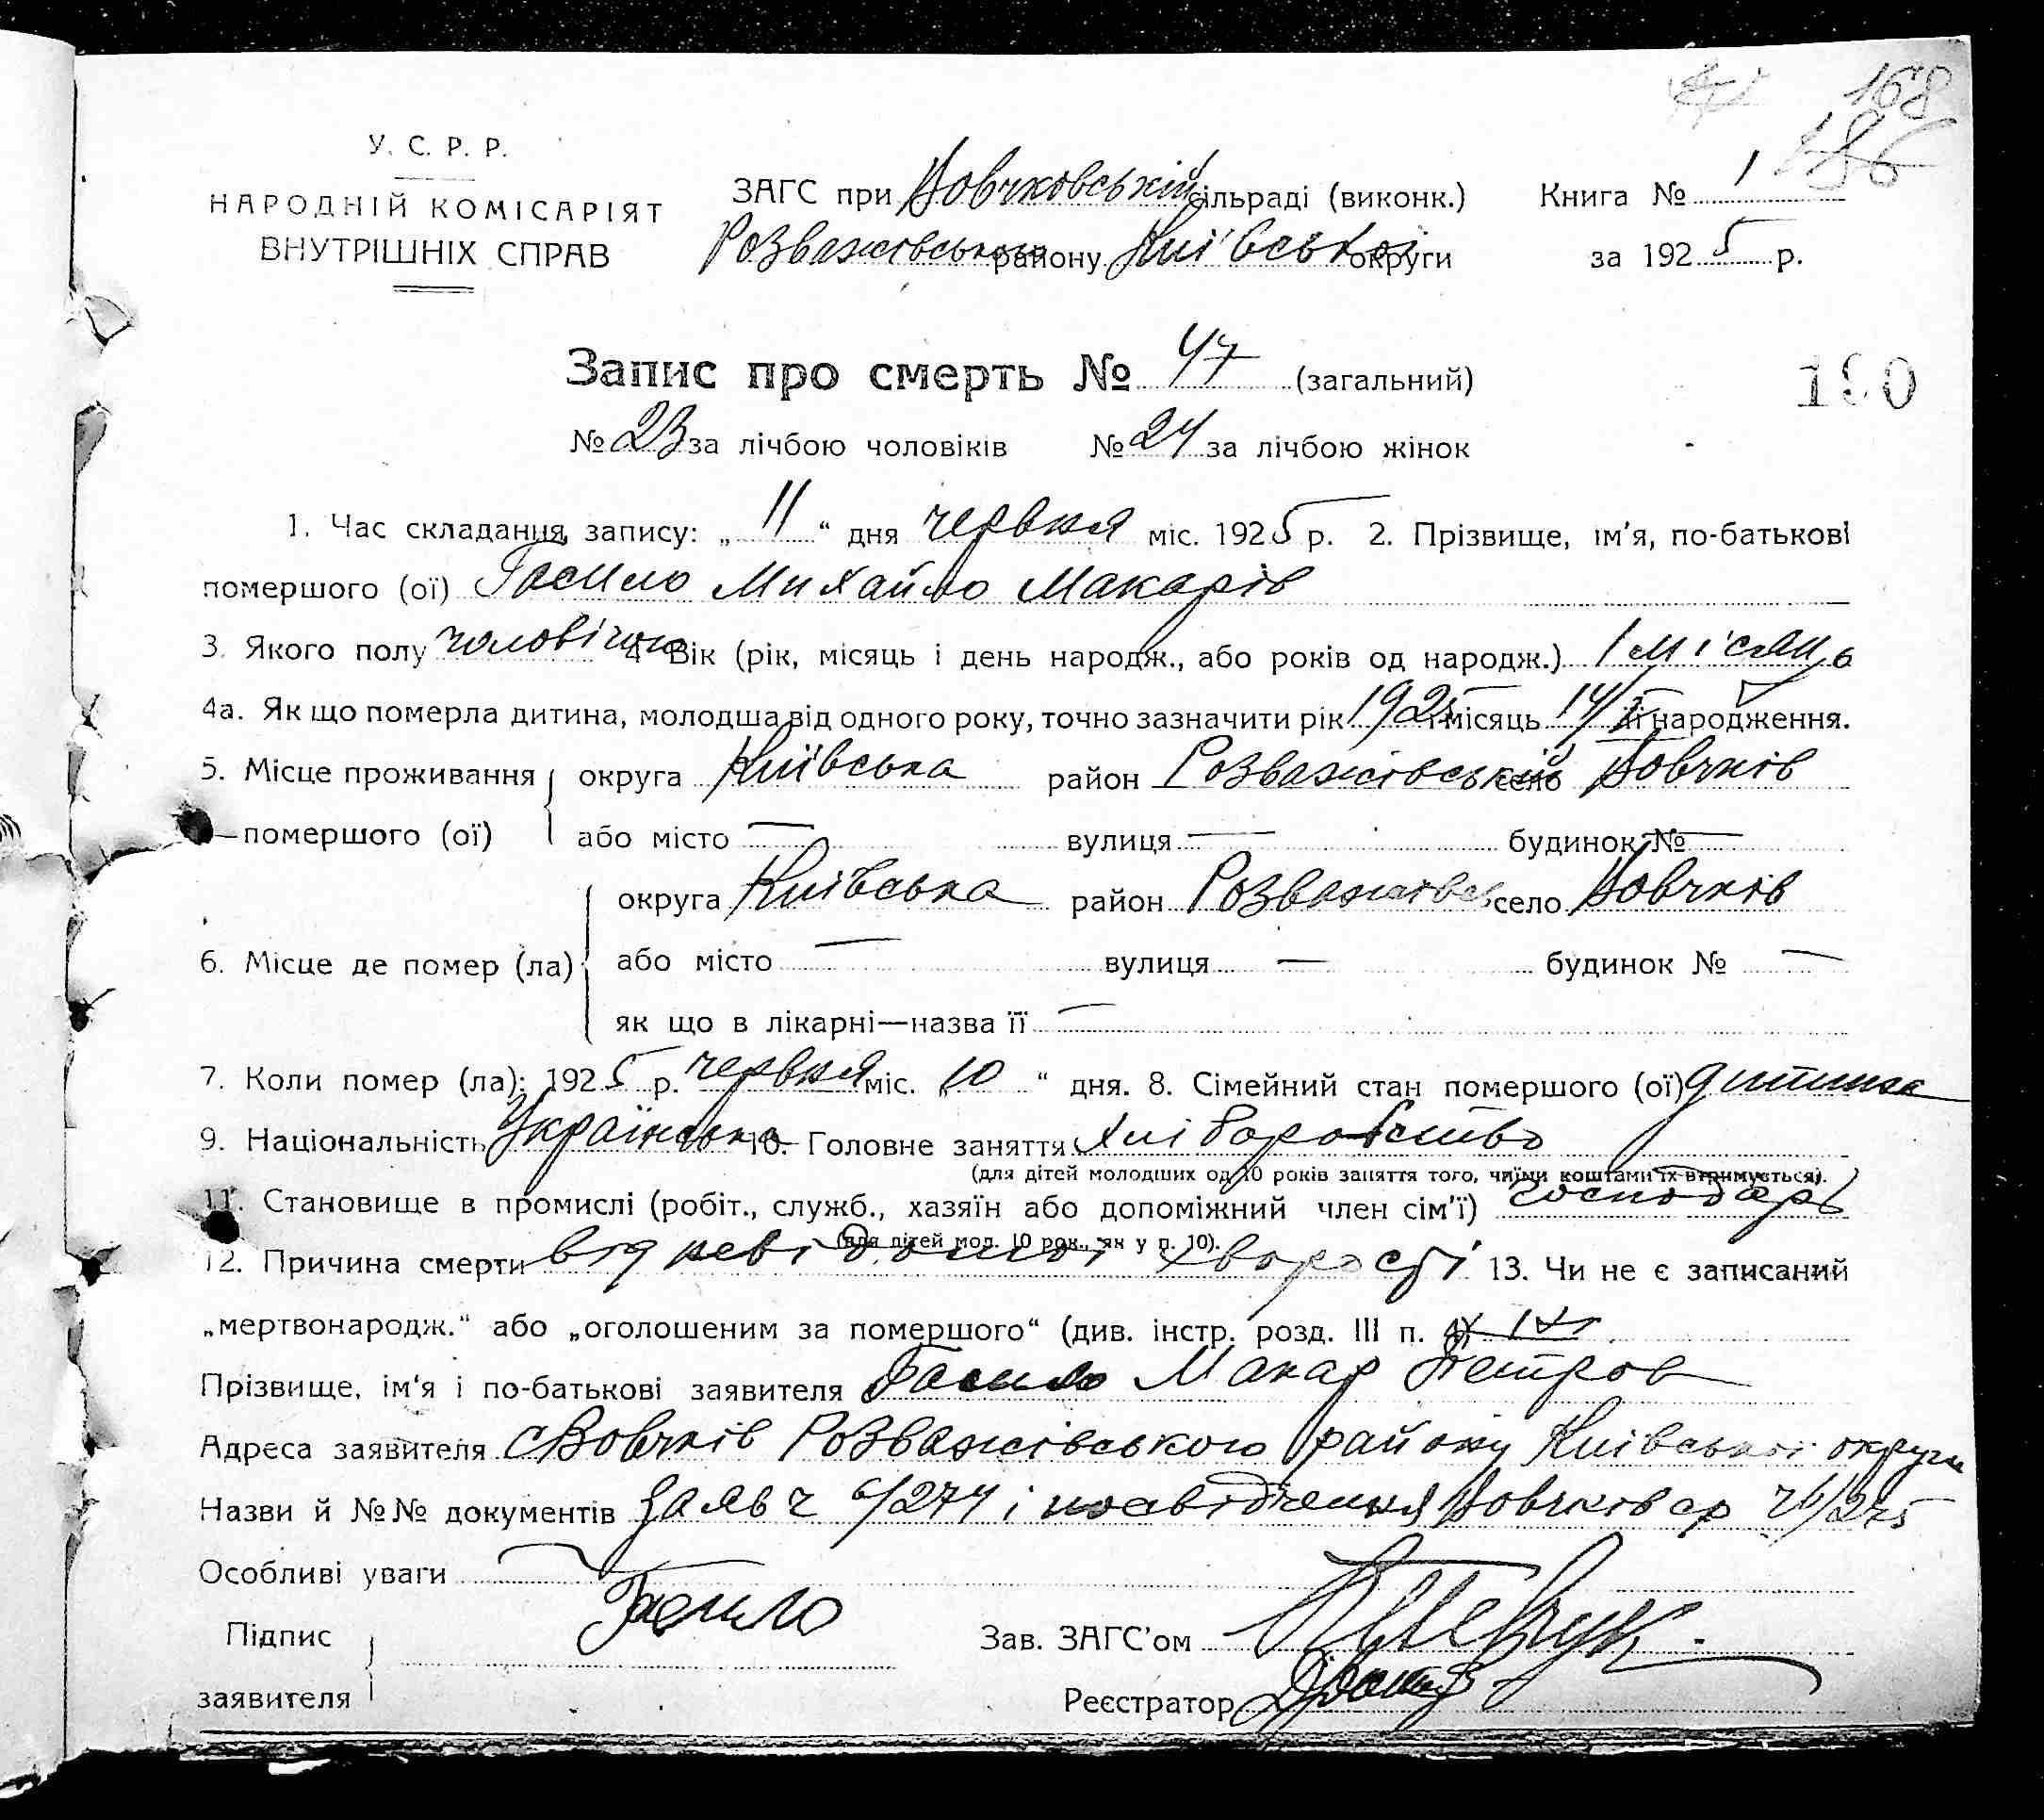 168
186
У. С. Р. Р.
НАРОДНІЙ КОМІСАРІЯТ
ВНУТРІШНІХ СПРАВ
ЗАГС при Вовчковській сільраді (виконк.) Книга № 1
Розважівського району Київської округи за 1925 р.
Запис про смерть № 47 (загальний)
190
№ 23 за лічбою чоловіків № 24 за лічбою жінок
1. Час складання запису: „ 11 “ дня червня міс. 1925 р. 2. Прізвище, ім'я, по-батькові
помершого (ої) Гасило Михайло Макарів
3. Якого полу чоловічого 4 Вік (рік, місяць і день народж., або років од народж.) 1 місяць
4а. Як що померла дитина, молодша від одного року, точно зазначити рік 1925 місяць 14/V народження.
5. Місце проживання округа Київська район Розважівський село Вовчків
помершого (ої) або місто — вулиця — будинок № —
округа Київська район Розважівсь село Вовчків
6. Місце де помер (ла) або місто — вулиця — будинок № —
як що в лікарні—назва її —
7. Коли помер (ла): 1925 р. червня міс. „10 “ дня. 8. Сімейний стан помершого (ої) дитина
9. Національність Українська 10. Головне заняття хліборобство
(для дітей молодших од 10 років заняття того, чиїми коштами їх втримується).
11. Становище в промислі (робіт., служб., хазяїн або допоміжний член сім'ї) господарь
(для дітей мол. 10 рок., як у п. 10).
12. Причина смерти від невідомої хворості 13. Чи не є записаний
„мертвонародж.“ або „оголошеним за помершого“ (див. інстр. розд. III п. 4)
Прізвище, ім'я і по-батькові заявителя Гасило Макар Петров
Адреса заявителя с Вовчків Розважівського району Київської округи
Назви й №№ документів Заяв ч 6/274 і посвідчення Вовчків ср ч 6/275
Особливі уваги —
Підпис Гасило Зав. ЗАГС'ом
заявителя Реєстратор